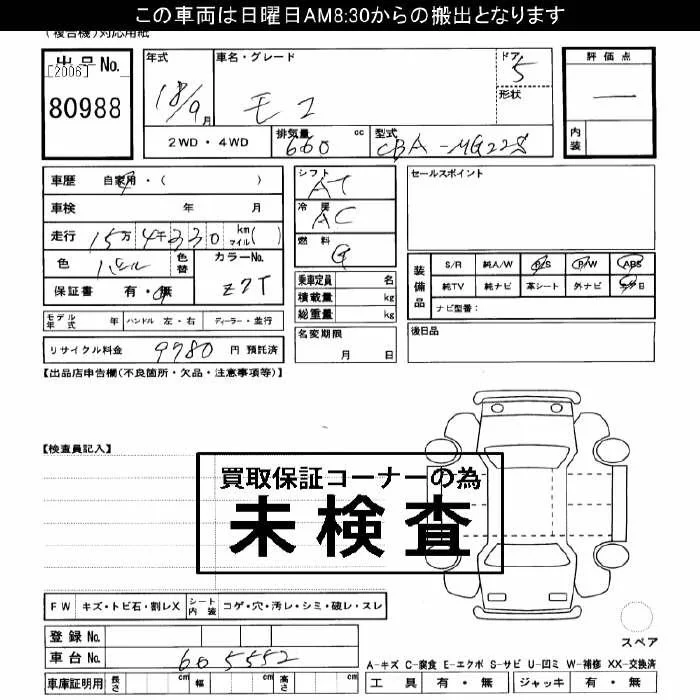 この車両は日曜日AM8:30からの搬出となります
(複合機)対応用紙
出品No. [2006] 80988
年式 18/9 月
車名・グレード モコ
ドア 5
形状
評価点 —
内装
2WD・4WD
排気量 660 cc
型式 CBA-MG22S
車歴 自家用・( )
車検 年 月
走行 15万4千330 km マイル( )
色 パール 色替
カラーNo. Z7T
保証書 有・無
モデル年式 年 ハンドル 左・右 ディーラー・並行
リサイクル料金 9780 円 預託済
シフト AT
冷房 AC
燃料 G
乗車定員 名
積載量 kg
総重量 kg
名変期限
月 日
セールスポイント
装備品
S/R 純A/W P/S P/W ABS
純TV 純ナビ 革シート 外ナビ
ナビ型番:
後日品
【出品店申告欄(不良箇所・欠品・注意事項等)】
【検査員記入】
買取保証コーナーの為
未検査
FW キズ・トビ石・割レX シート内装 コゲ・穴・汚レ・シミ・破レ・スレ
登録No.
車台No. 605552
車庫証明用 長さ cm 幅 cm 高さ cm
スペア
A-キズ C-腐食 E-エクボ S-サビ U-凹ミ W-補修 XX-交換済
工具 有・無 ジャッキ 有・無